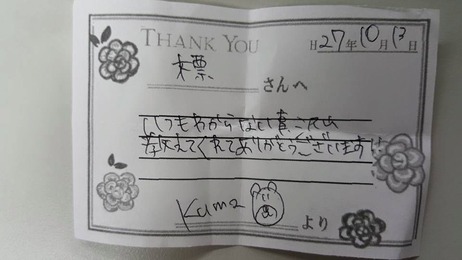 THANK YOU
H27年10月13日
標さんへ
いつもわからない事沢山
教えてくれてありがとうございます!!
Kuma より